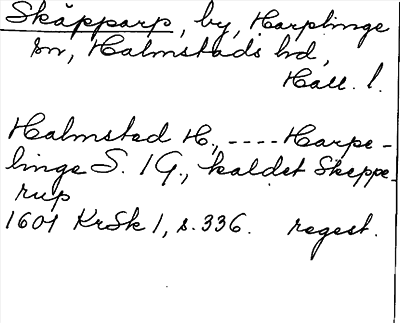 Skäpparp, by, Harplinge
sn, Halmstads hd,
Hall. l.
Halmsted H., ---- Harpe-
linge S. 1 G., kaldet Skeppe-
rup
1601 KrSk 1, s. 336. regest.